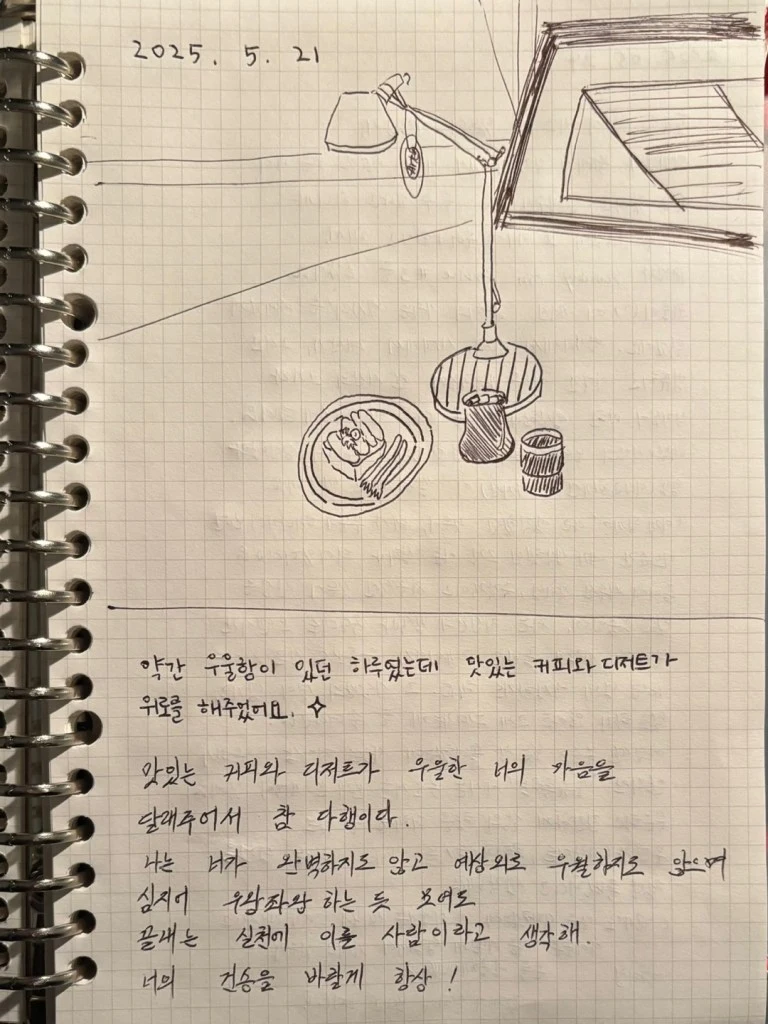 2025. 5. 21
약간 우울함이 있던 하루였는데 맛있는 커피와 디저트가
위로를 해주었어요.
맛있는 커피와 디저트가 우울한 너의 가음을
달래주어서 참 다행이다.
나는 너가 완벽하지도 않고 예상외로 우월하지도 않으며
심지어 우왕좌왕 하는 듯 보여도
끝내는 실천에 이를 사람이라고 생각해.
너의 건승을 바랄게 항상!